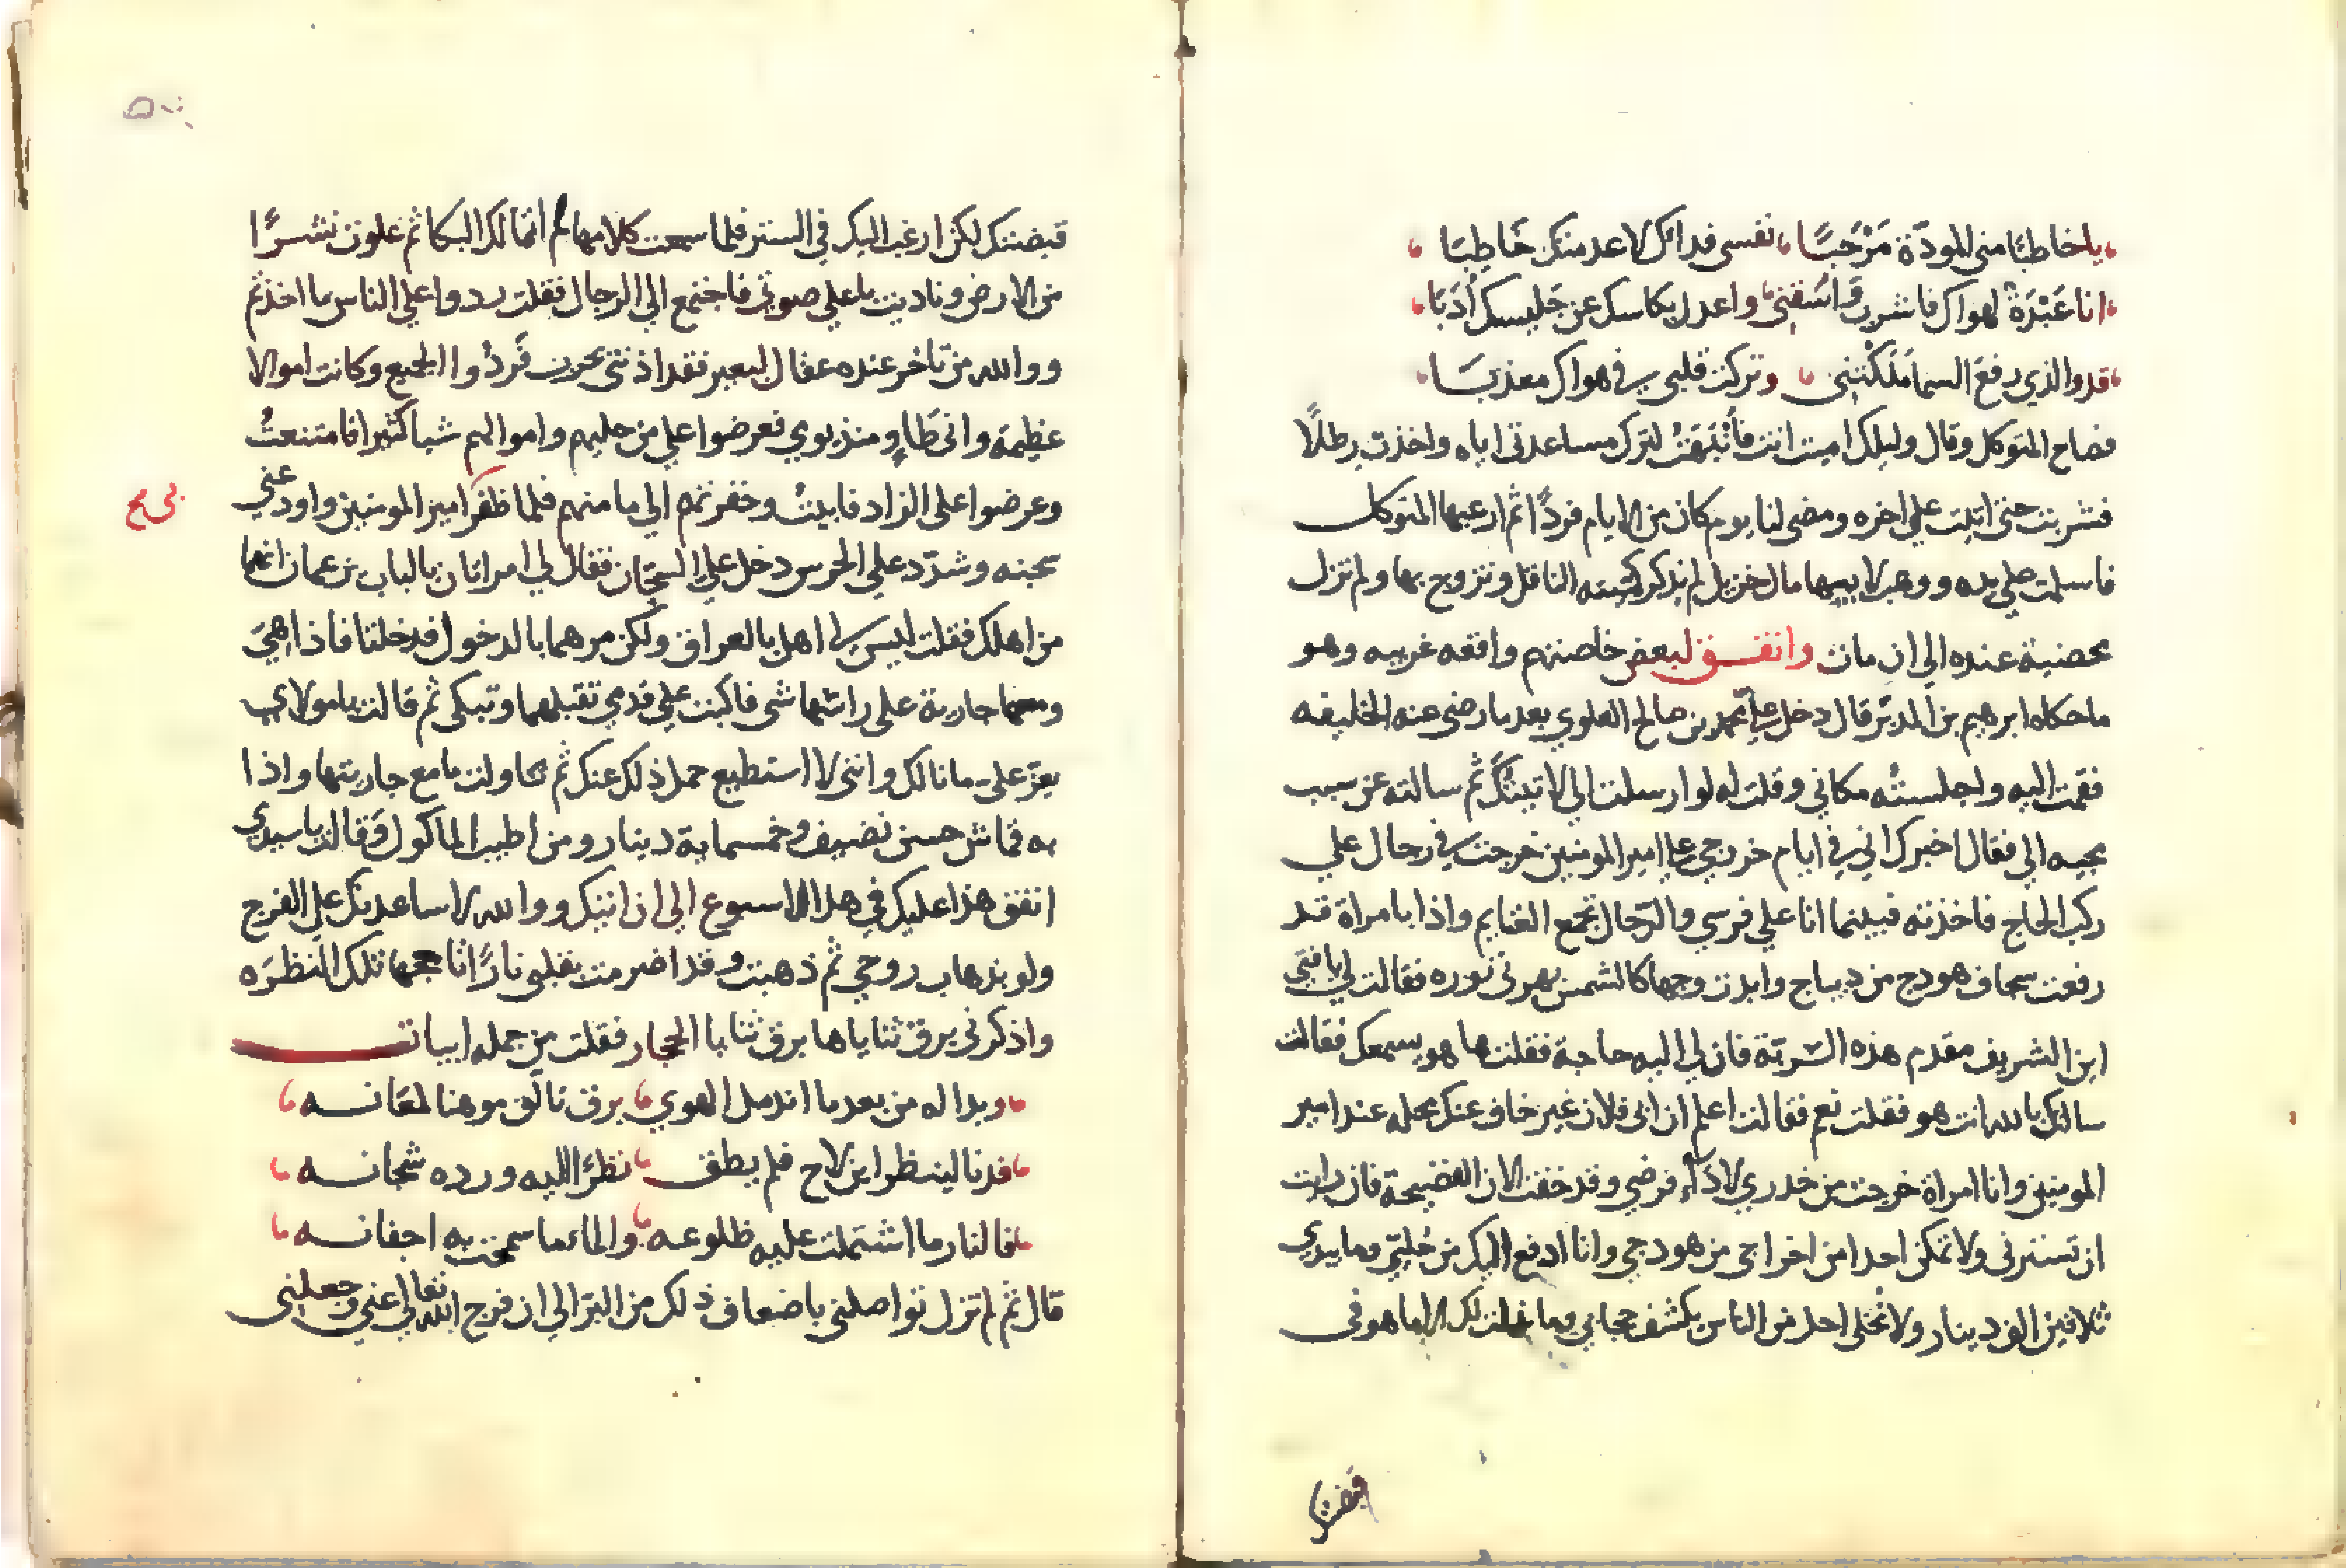 يا خاطبًا مني المودّة مَرْحَبًا نفسي فداك لا عدمتك خَاطِبَا
انا عَبْدَة لهواك فاشرب وَاسْقِني واعدل بكاسك عن جَليسك اُدَبَا
قد والذي رفع السما مَلكْتَنِي وتركت قلبي في هواك معذبَا
فصاح المتوكل وقال ويلك اميت انت فأنْتَبَهَتُ لترك مساعدتي اياه واخذت رطلًا
فشربت حتى اتيت علي اخره ومضى لنا يوم كان من الايام فردًا ثم ارعبها المتوكل
فاسلمت علي يده ووهب لابيها مال جزيل لم يذكر كميته الناقل وتزوج بها ولم تزل
محضية عنده الي ان مات واتفق لبعض خاصتهم واقعه غريبه وهو
ما حكاه ابرهيم بن المدبّر قال دخل علي محمد بن صالح العلوي بعد ما رضى عنه الخليفه
فقمت اليه واجلستُه مكاني وقلت له لو ارسلت الي لاتيتُكَ ثم سالته عن سبب
مجيه الي فقال اخبرك اني في ايام خروجي علي امير المومنين خرجت في رجال علي
ركب الحاج فاخذته فبينما انا علي فرسي والرّجال تجمع الغنايم واذا بامراة قد
رفعت سجاف هودج من ديباج وابدت وجها كالشمس بهرني نوره فقالت لي يا فتي
اين الشريف مقدم هذه السّريّة فان لي اليه حاجة فقلت ها هو يسمعك فقالت
سالتك بالله انت هو فقلت نعم فقالت اعلم ان ابي فلان غير خاف عنك محله عند امير
المومنين وانا امراة خرجت من خدري لادآء فرضي وقد خفت الان الفضيحة فان رايت
ان تسترني ولا تمكن احدا من اخراجي من هودجي وانا ادفع اليك من حُليتي وما بيدي
ثلاثين الف دينار ولا تخلى احد من الناس يكشف حجابي وما قلت لك الا ما هو في
قبضتك
قبضتك لكن ارغب اليك في الستر فلما سمعت كلامها لم اتمالك البكا ثم علوت نشزًا
من الارض وناديت باعلي صوتي فاجتمع الي الرجال فقلت ردوا علي الناس ما اخذتم
ووالله من تاخر عنده عقال لبعير فقد اذنتي بحرب فَردُوا الجميع وكانت اموالا
عظيمة وانى طَاوٍ منذ يومي فعرضوا علي من حليهم واموالهم شيا كثيرا فامتنعتُ
وعرضوا على الزاد فابيتُ وخفرتهم الي مامنهم فلما ظفر امير المومنين واودعني
سجنه وشدّد علي الحرس دخل علي السجّان فقال لي امراتان بالباب تزعمان انهما
من اهلك فقلت ليس لى اهل بالعراق ولكن مرهما بالدخول فدخلتا فاذا هيَ
ومعها جارية على راسها شى فاكبت علي قدمي تقبلهما وتبكى ثم قالت يا مولاي
يعزّ على ما نالك وانني لا استطيع حمل ذلك عنك ثم تناولت ما مع جاريتها واذا
به قماش حسن نضيف وخمسماية دينار ومن اطيب الماكول وَقالت يا سيدي
انفق هذا عليك في هذا الاسبوع الى ان اتيتك ووالله لاساعدنك علي الفرج
ولو بذهاب روحي ثم ذهبت وقد اضرمت بقلبي نارًا تاججها تلك النظرَه
واذكرني برق ثناياها برق ثنايا الحجاز فقلت من جمله ابيات
وبدا له من بعد ما اندمل الهوي برق تالّق موهنا لمعَانه
فدنا لينظر اين لاح فلم يطق نظرًا اليه ورده شجانه
فالنار ما اشتملت عليه ظلوعه والماء ما سمحت به اجفانه
قال ثم لم تزل تواصلني باضعاف ذلك من البرّ الي ان فرج الله تعالي عني وجعلني